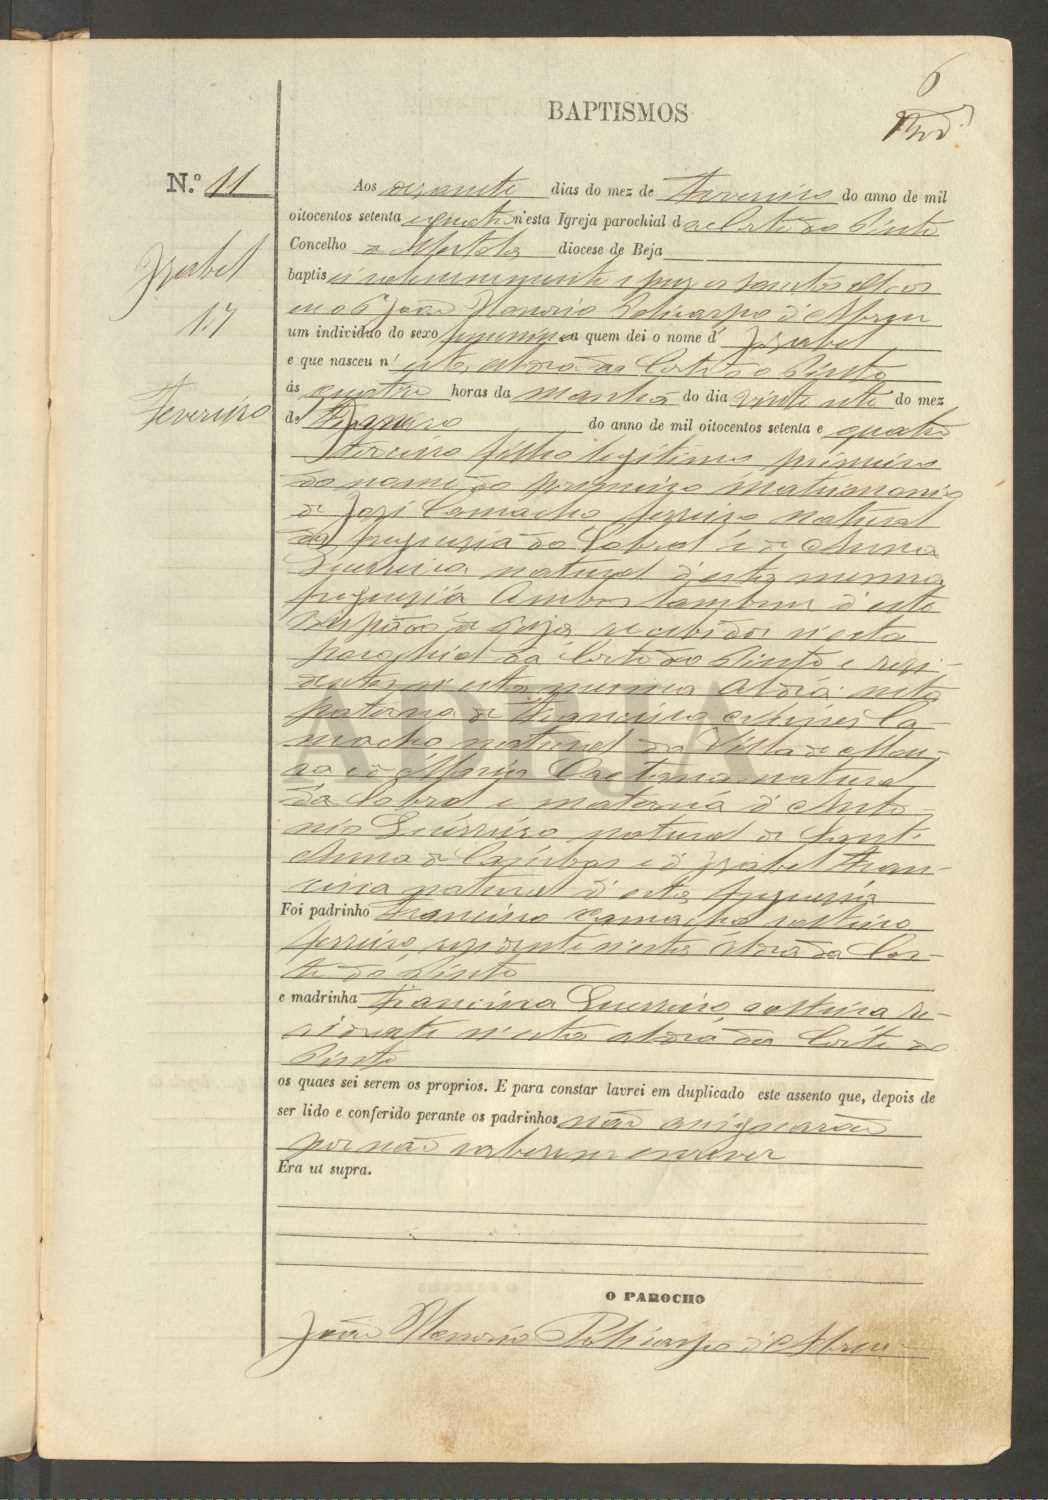 6
BAPTISMOS
N.º 11
Izabel
17
Fevereiro
Aos dezasete dias do mez de Fevereiro do anno de mil
oitocentos setenta e quatro n'esta Igreja parochial da Corte do Pinto
Concelho de Mertola diocese de Beja
baptisei solemnemente e puz os santos oleos
eu o P.e João Honorio Policarpo d'Abreu
um individuo do sexo femenino a quem dei o nome d' Izabel
e que nasceu n' esta aldea da Corte do Pinto
ás quatro horas da manhã do dia vinte sete do mez
de Janeiro do anno de mil oitocentos setenta e quatro
terceiro filho legitimo primeiro
do nome do primeiro matrimonio
de José Camacho ferreiro natural
da freguesia do Sobral e de Anna
Guerreira natural d'esta mesma
freguesia ambos tambem d'este
Bispado de Beja recebidos n'esta
parochial da Corte do Pinto e resi-
dentes n'esta mesma aldea neta
paterna de Francisco Camacho
natural da Villa de Mou-
ra e de Maria Caetana natural
do Sobral e materna d'Anto-
nio Guerreiro natural de Sant'
Anna de Cambas e d'Izabel Fran-
cisca natural d'esta freguesia
Foi padrinho Francisco Camacho solteiro
ferreiro, residente n'esta aldea da Cor-
te do Pinto
e madrinha Francisca Guerreiro, solteira re-
sidente n'esta aldea da Corte do
Pinto
os quaes sei serem os proprios. E para constar lavrei em duplicado este assento que, depois de
ser lido e conferido perante os padrinhos não assignarão
por não saberem escrever
Era ut supra.
O PAROCHO
João Honorio Policarpo d'Abreu
ADBJA